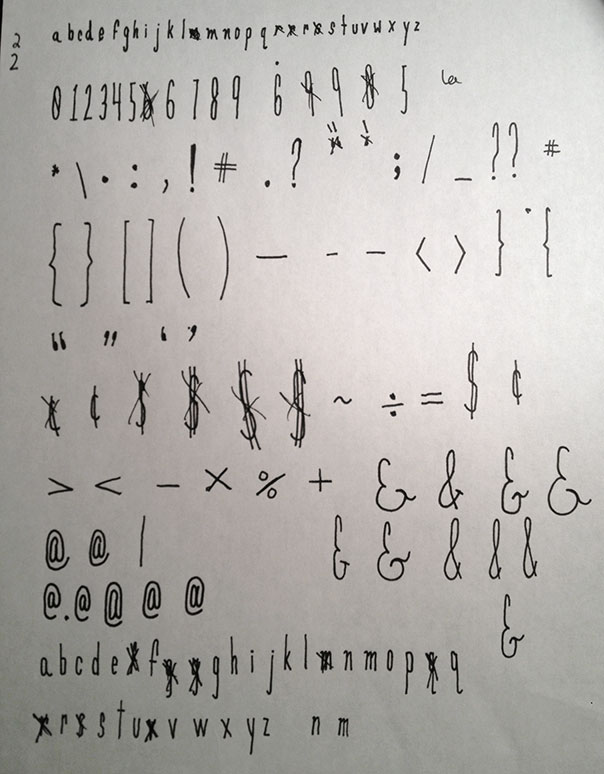 2
2
a b c d e f g h i j k l m n o p q r s t u v w x y z
0 1 2 3 4 5 6 7 8 9 6 9 5 la
* \ · : , ! # . ? ; / _ ? ? #
{ } [ ] ( ) — - – < > } {
“ ” ‘ ’
¢ ~ ÷ = $ ¢
> < − × % + & & & &
@ @ | & & & & &
@ . @ @ @ @ &
a b c d e f g h i j k l n m o p q
r s t u v w x y z n m